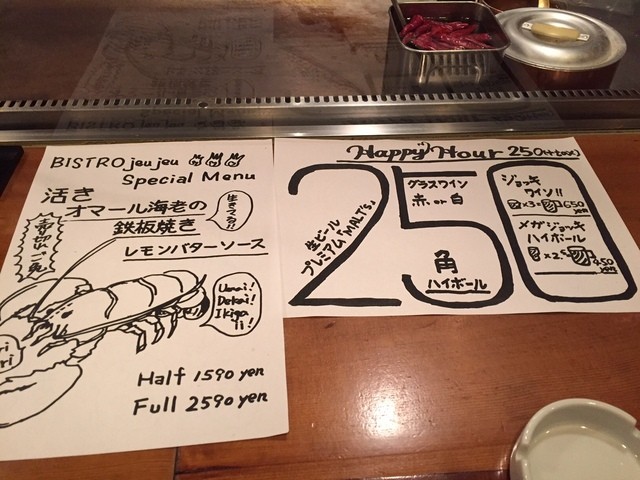 BISTRO jeujeu
Special Menu
活き
オマール海老の
鉄板焼き
レモンバターソース
生きてる!!
売切れご免
Umai!
Dekai!
Ikigaii!
Half 1590 yen
Full 2590 yen
Happy Hour 250
250
生ビール
プレミアム「MALT'S」
グラスワイン
赤 or 白
角
ハイボール
ジョッキ
ワイン!!
x3= 650
yen
メガジョッキ
ハイボール
x2.5 450
yen